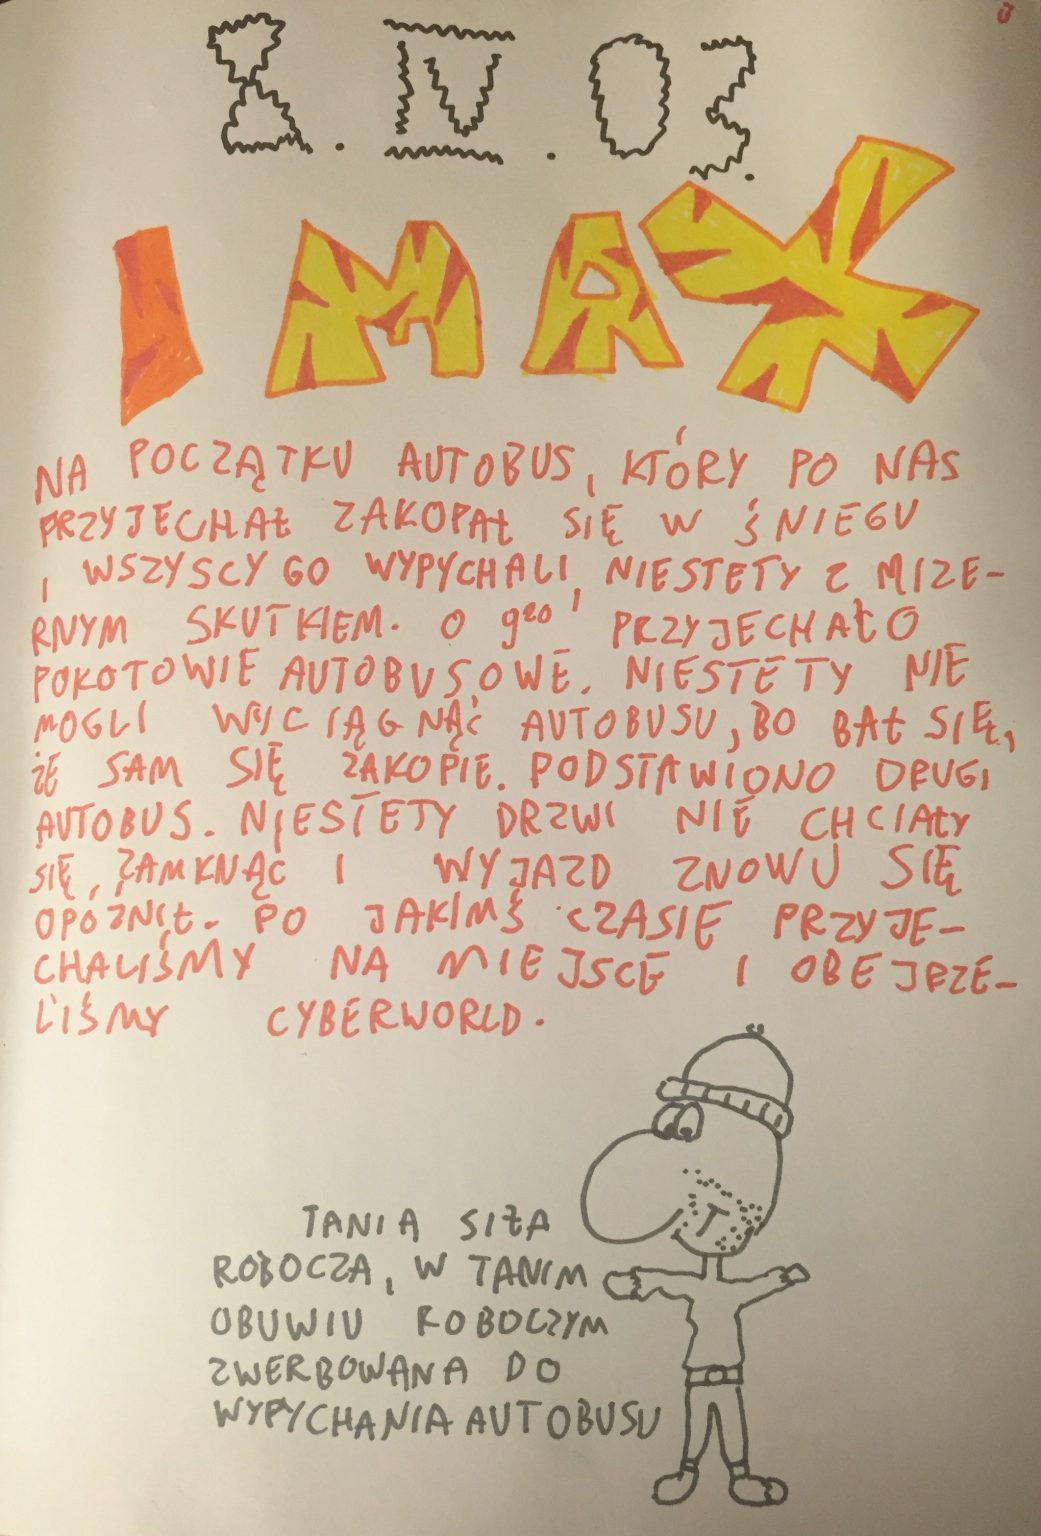 8.IV.03.
IMAX
NA POCZĄTKU AUTOBUS, KTÓRY PO NAS
PRZYJECHAŁ ZAKOPAŁ SIĘ W ŚNIEGU
I WSZYSCY GO WYPYCHALI, NIESTETY Z MIZE-
RNYM SKUTKIEM. O 9²⁰ PRZYJECHAŁO
POKOTOWIE AUTOBUSOWE. NIESTETY NIE
MOGLI WYCIĄGNĄĆ AUTOBUSU, BO BAŁ SIĘ,
ŻE SAM SIĘ ZAKOPIE. PODSTAWIONO DRUGI
AUTOBUS. NIESTETY DRZWI NIE CHCIAŁY
SIĘ ZAMKNĄĆ I WYJAZD ZNOWU SIĘ
OPÓŹNIŁ. PO JAKIMŚ CZASIE PRZYJE-
CHALIŚMY NA MIEJSCE I OBEJRZE-
LIŚMY CYBERWORLD.
TANIA SIŁA
ROBOCZA, W TANIM
OBUWIU ROBOCZYM
ZWERBOWANA DO
WYPYCHANIA AUTOBUSU